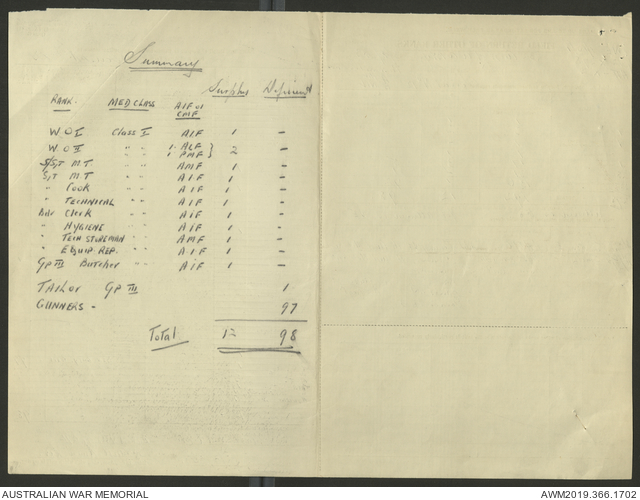 Summary
Surplus Deficient
RANK. MED CLASS AIF or CMF
W.O I Class I AIF 1 -
W.O II " " 1. AIF } 2 -
1 PMF }
S/Sjt M.T " " AMF 1 -
Sjt M.T " " AIF 1 -
" Cook " " AIF 1 -
" TECHNICAL " " AIF 1 -
Bdr Clerk " " AIF 1 -
" HYGIENE " " AIF 1 -
" TECH STOREMAN " " AMF 1 -
" EQUIP. REP. " " AIF 1 -
GP III Butcher AIF 1 -
TAILOR GP III 1
GUNNERS - 97
Total 98
AUSTRALIAN WAR MEMORIAL AWM2019.366.1702